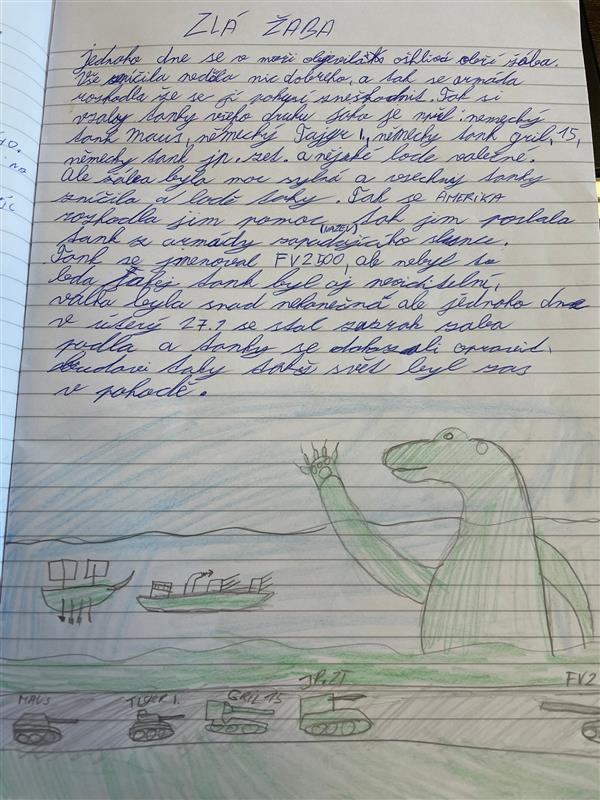 ZLÁ ŽABA
jednoho dne se v moři objevila ošklivá obří žaba.
Vše ničila neděla nic dobrého, a tak se armáda
rozhodla že se jí pokusí zneškodnit. Tak si
vzaly tanky všeho druhu jako je např. nemecký
tank Maus, německý Tajger 1., německy tank gril, 15,
německy tank jp. zet. a nějake lode valečne.
Ale žába byla moc sylná a všechny tanky
zničila a lodě taky. Tak se AMERIKA
rozhodla jim pomoc tak jim poslala
(NÁZEV)
tank z armády zapadajícího slunce.
Tank se jmenoval FV2500, ale nebyl to
leda tank byl aj neviditelní,
válka byla snad nekonečná ale jednoho dne
v úterý 27.2 se stal zazrak zaba
padla a tanky se opravid.
budovi taky takže svět byl zas
v pohodě.
MAUS TIGER I. GRIL 15 JP. ZT FV2